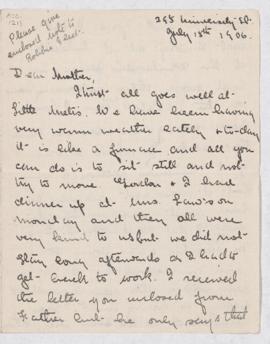 Please give
enclosed note to
Robbie
295 University St.
July 18th 1906.
Dear Mother,
I trust all goes well at
Little Metis. We have been having
very warm weather lately & to-day
it is like a furnace and all you
can do is to sit still and not
try to move. Gordon & I had
dinner up at Mrs. Law's on
Monday and they all were
very kind to us but we did not
stay long afterwards as I had to
get back to work. I received
the letter you enclosed from
Father but he only says that